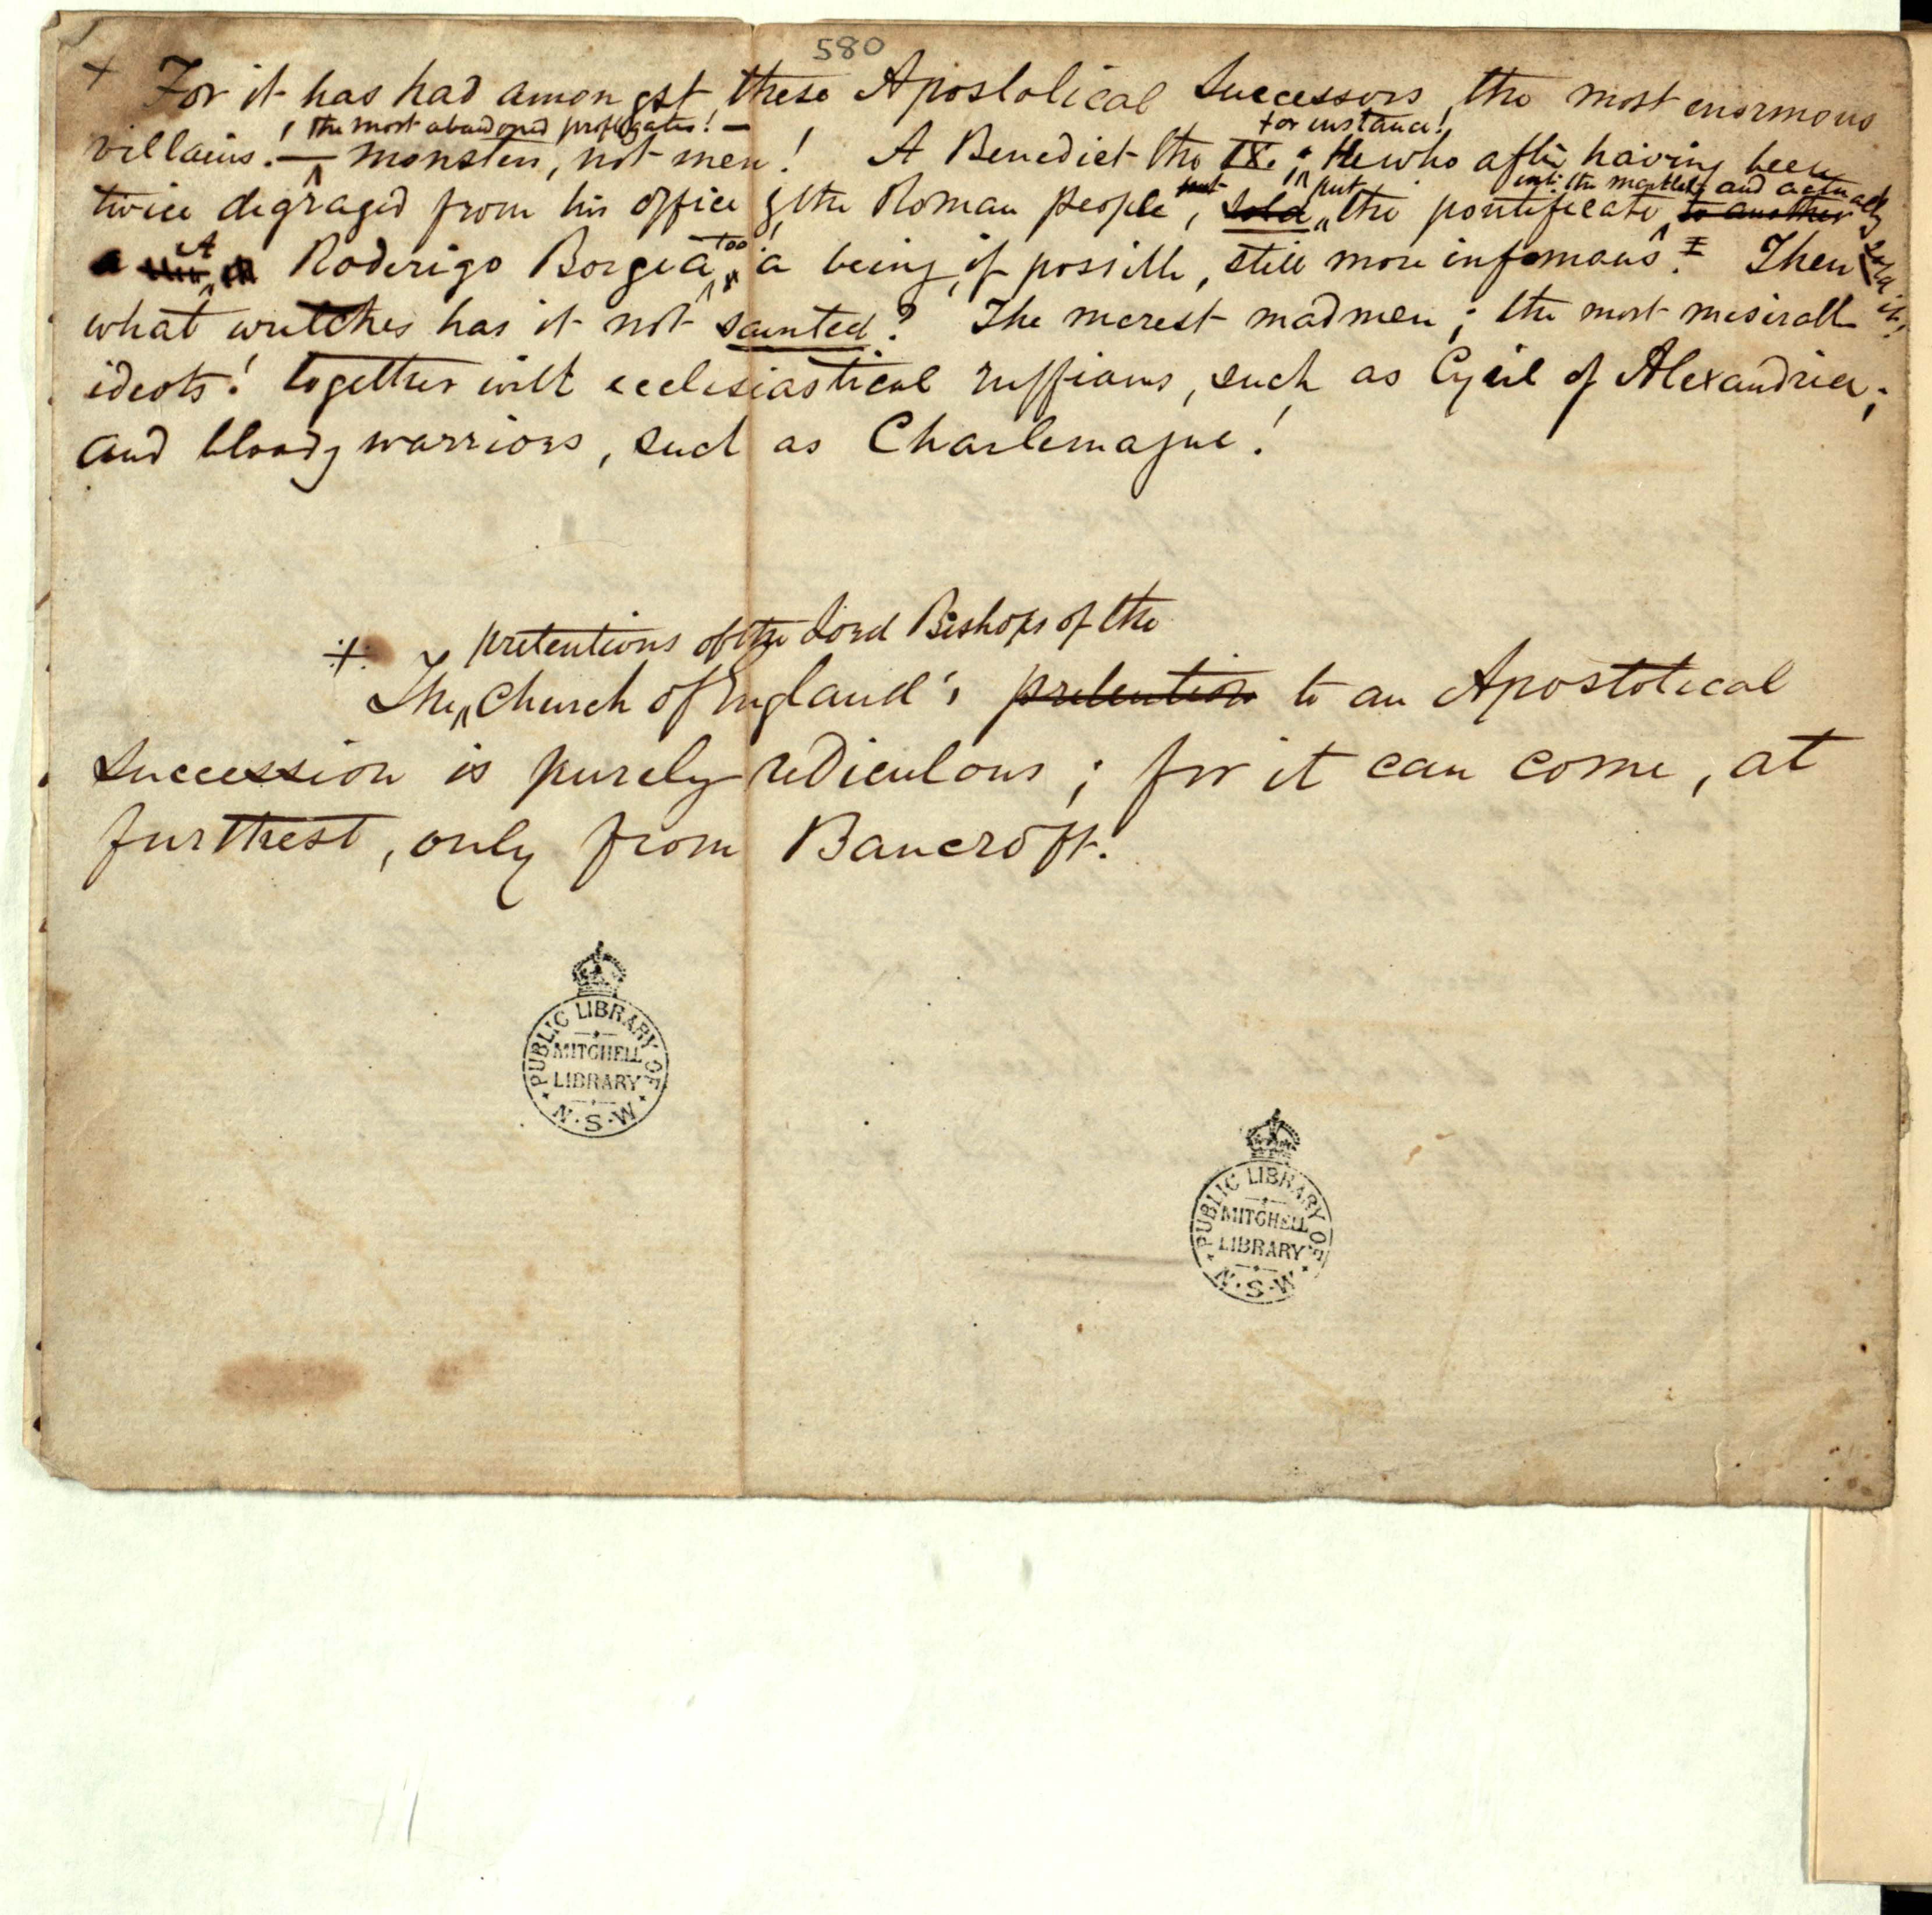 580
+ For it has had amongst these Apostolical Successors, the most enormous
! the most abandoned profligates! —
for instance!
villains! — monsters, not men! A Benedict the IX.; He who after having been
put put into the market and actually
twice degraged from his office by the Roman people, sold the pontificate to another
sold it.
A too
a Roderigo Borgia, a being, if possible, still more infamous! ‡ Then
what wretches has it not sainted? The merest madmen; the most miserable
ideots! together with ecclesiastical ruffians, such as Cyril of Alexandria;
and bloody warriors, such as Charlemagne!
‡ pretentions of the Lord Bishops of the
The Church of England's pretention to an Apostolical
succession is purely rediculous; for it can come, at
furthest, only from Bancroft.
PUBLIC LIBRARY OF
MITCHELL
LIBRARY
N.S.W
PUBLIC LIBRARY OF
MITCHELL
LIBRARY
N.S.W